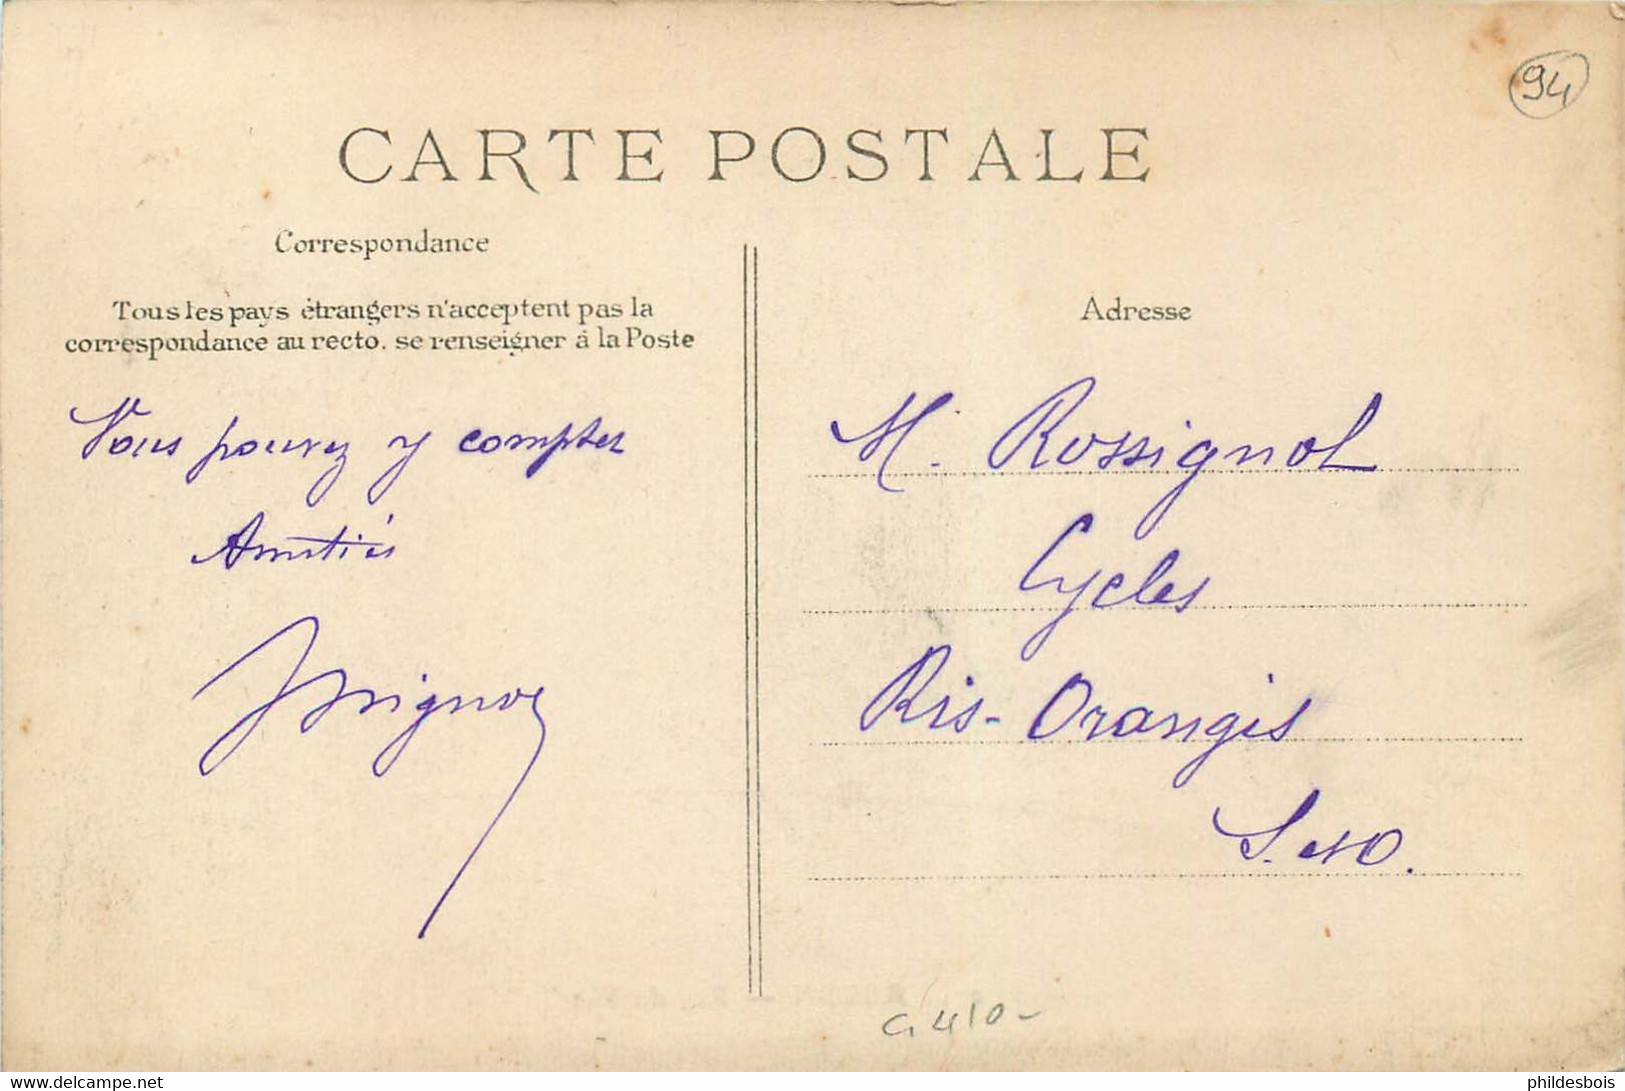 94
CARTE POSTALE
Correspondance
Tous les pays étrangers n'acceptent pas la
correspondance au recto. se renseigner à la Poste
Adresse
Vous pouvez y compter
Amitiés
M. Rossignol
Cycles
Ris-Orangis
S. et O.
www.delcampe.net
phildesbois